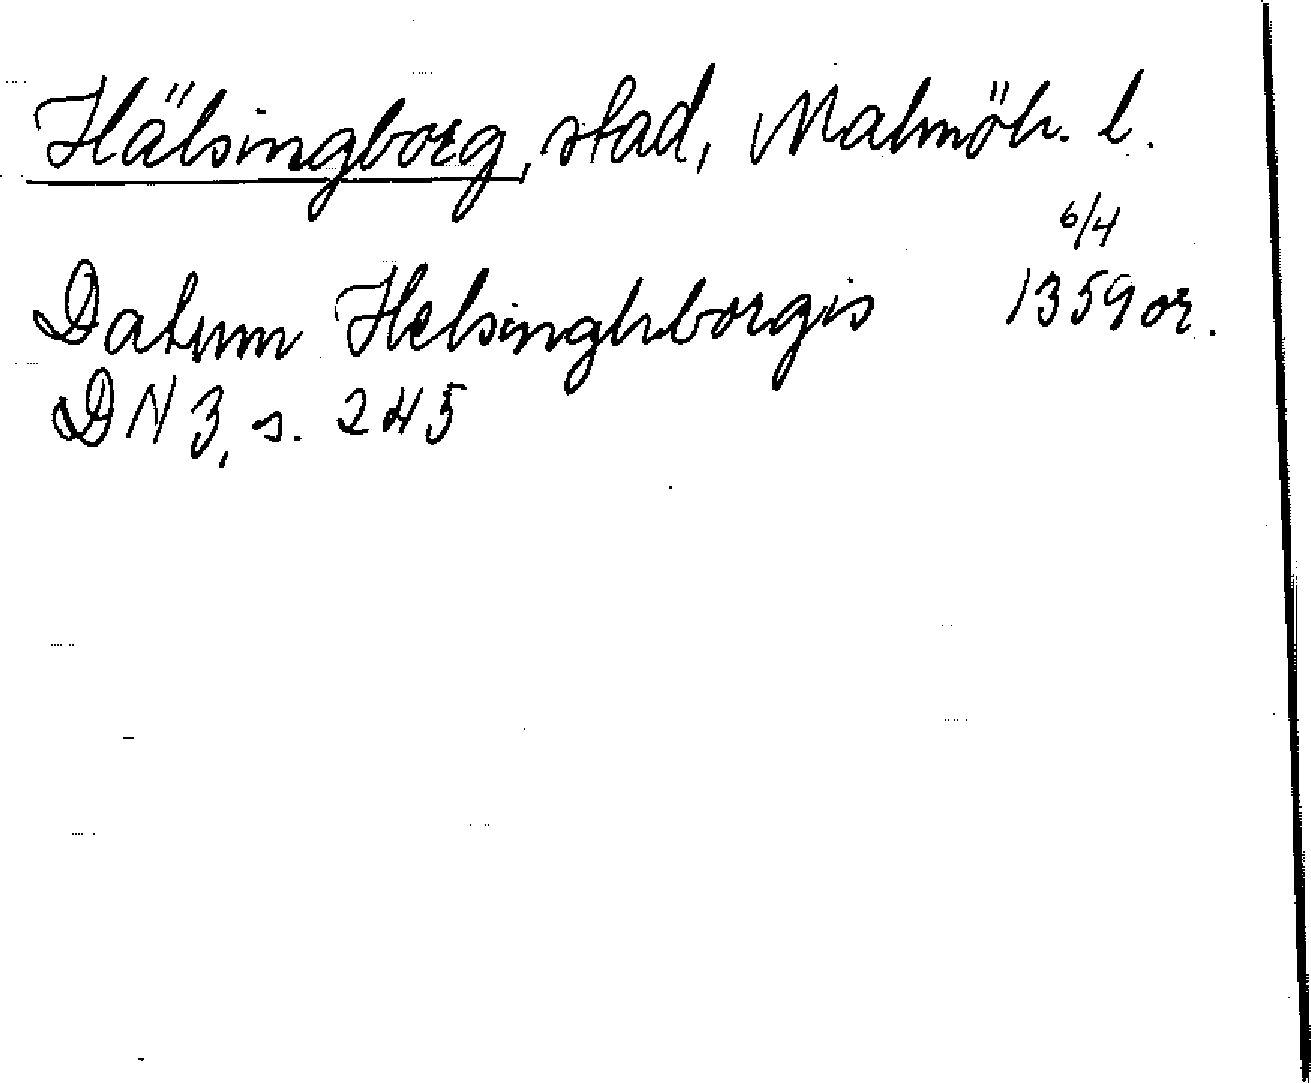 Hälsingborg, stad, Malmöh. l.
6/4
Datum Helsinghborgis 1359 or.
DN 3, s. 245